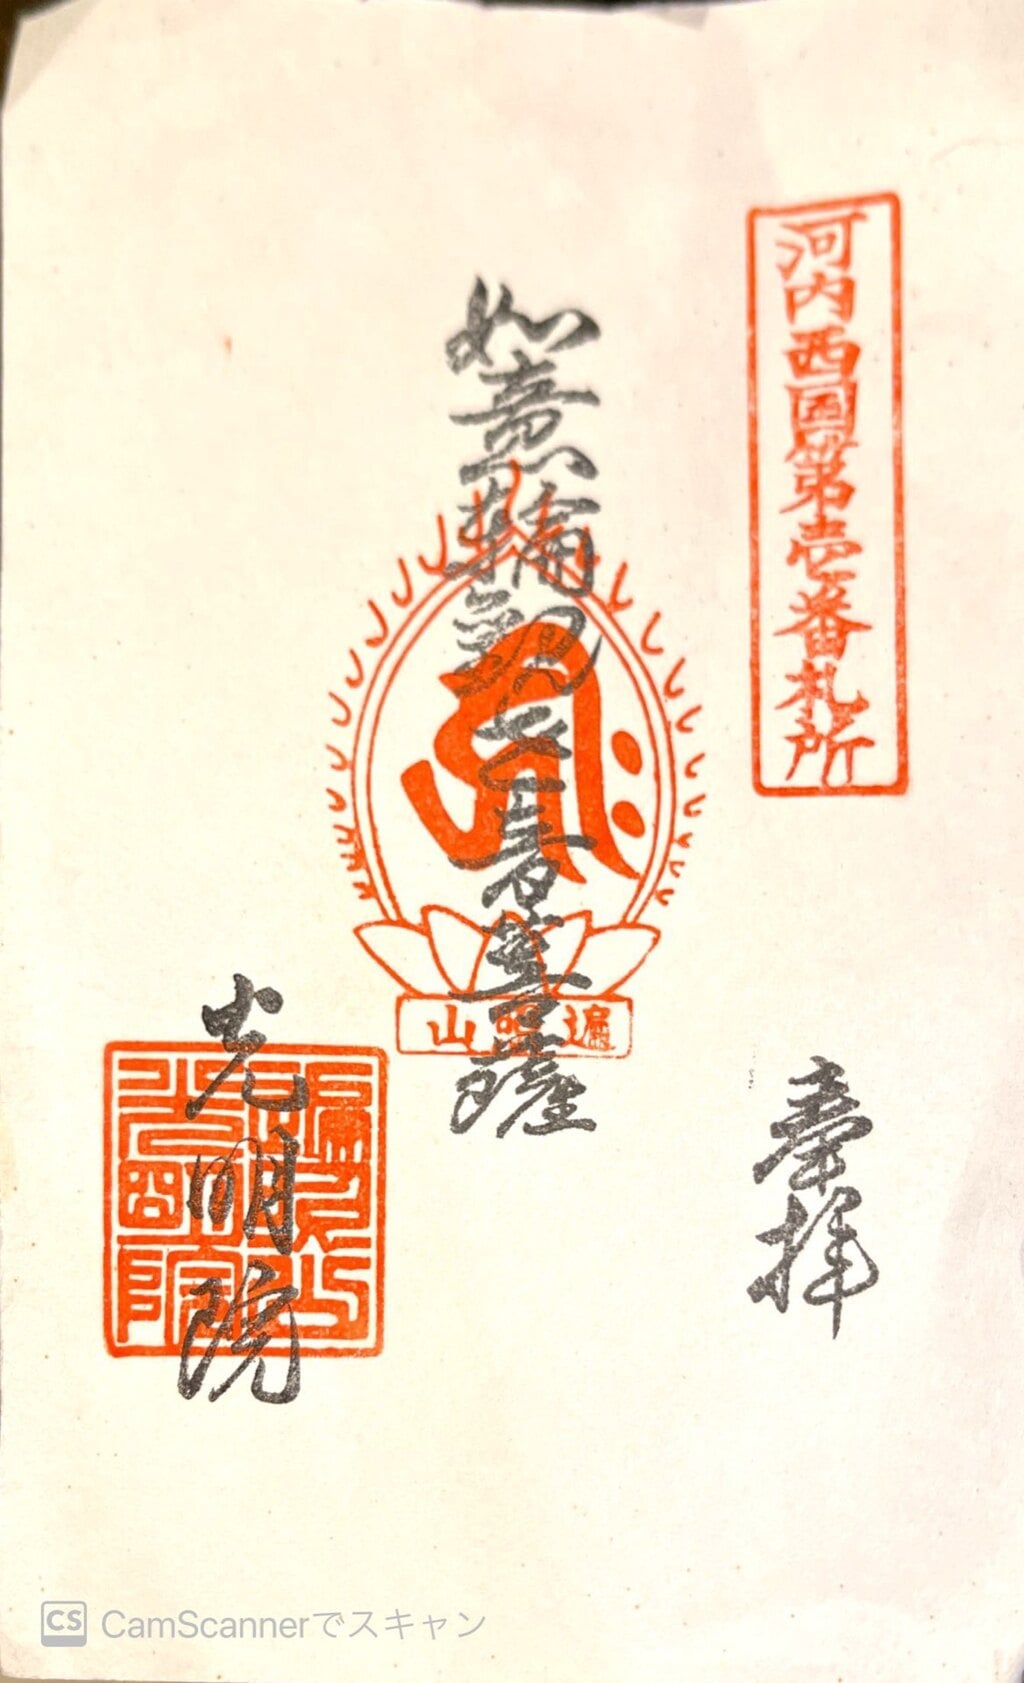 河内西国第壱番札所
奉拝
如意輪観世音菩薩
遍照山
光明院
遍照山
光明院
CS CamScannerでスキャン